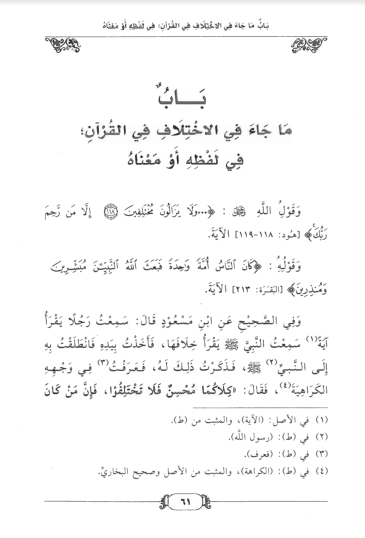 بَابُ مَا جَاءَ فِي الاخْتِلَافِ فِي القُرْآنِ؛ فِي لَفْظِهِ أَوْ مَعْنَاهُ
بَـــابُ
مَا جَاءَ فِي الاخْتِلَافِ فِي القُرْآنِ؛
فِي لَفْظِهِ أَوْ مَعْنَاهُ
وَقَوْلُ اللَّهِ ﷻ : ﴿...وَلَا يَزَالُونَ مُخْتَلِفِينَ ﴿١١٨﴾ إِلَّا مَن رَّحِمَ
رَبُّكَ﴾ [هُود: ١١٨-١١٩] الآيَةَ.
وَقَوْلُهُ : ﴿كَانَ النَّاسُ أُمَّةً وَاحِدَةً فَبَعَثَ اللَّهُ النَّبِيِّينَ مُبَشِّرِينَ
وَمُنذِرِينَ﴾ [البَقَرَة: ٢١٣] الآيَةَ.
وَفِي الصَّحِيحِ عَنِ ابْنِ مَسْعُودٍ قَالَ: سَمِعْتُ رَجُلًا يَقْرَأُ
آيَةً(١) سَمِعْتُ النَّبِيَّ ﷺ يَقْرَأُ خِلَافَهَا، فَأَخَذْتُ بِيَدِهِ فَانْطَلَقْتُ بِهِ
إِلَى النَّبِيِّ(٢) ﷺ، فَذَكَرْتُ ذَلِكَ لَهُ، فَعَرَفْتُ(٣) فِي وَجْهِهِ
الكَرَاهِيَةَ(٤)، فَقَالَ: «كِلَاكُمَا مُحْسِنٌ فَلَا تَخْتَلِفُوا، فَإِنَّ مَنْ كَانَ
(١) في الأصل: (الآية)، والمثبت من (ط).
(٢) في (ط): (رسول الله).
(٣) في (ط): (فعرف).
(٤) في (ط): (الكراهة)، والمثبت من الأصل وصحيح البخاري.
٦١